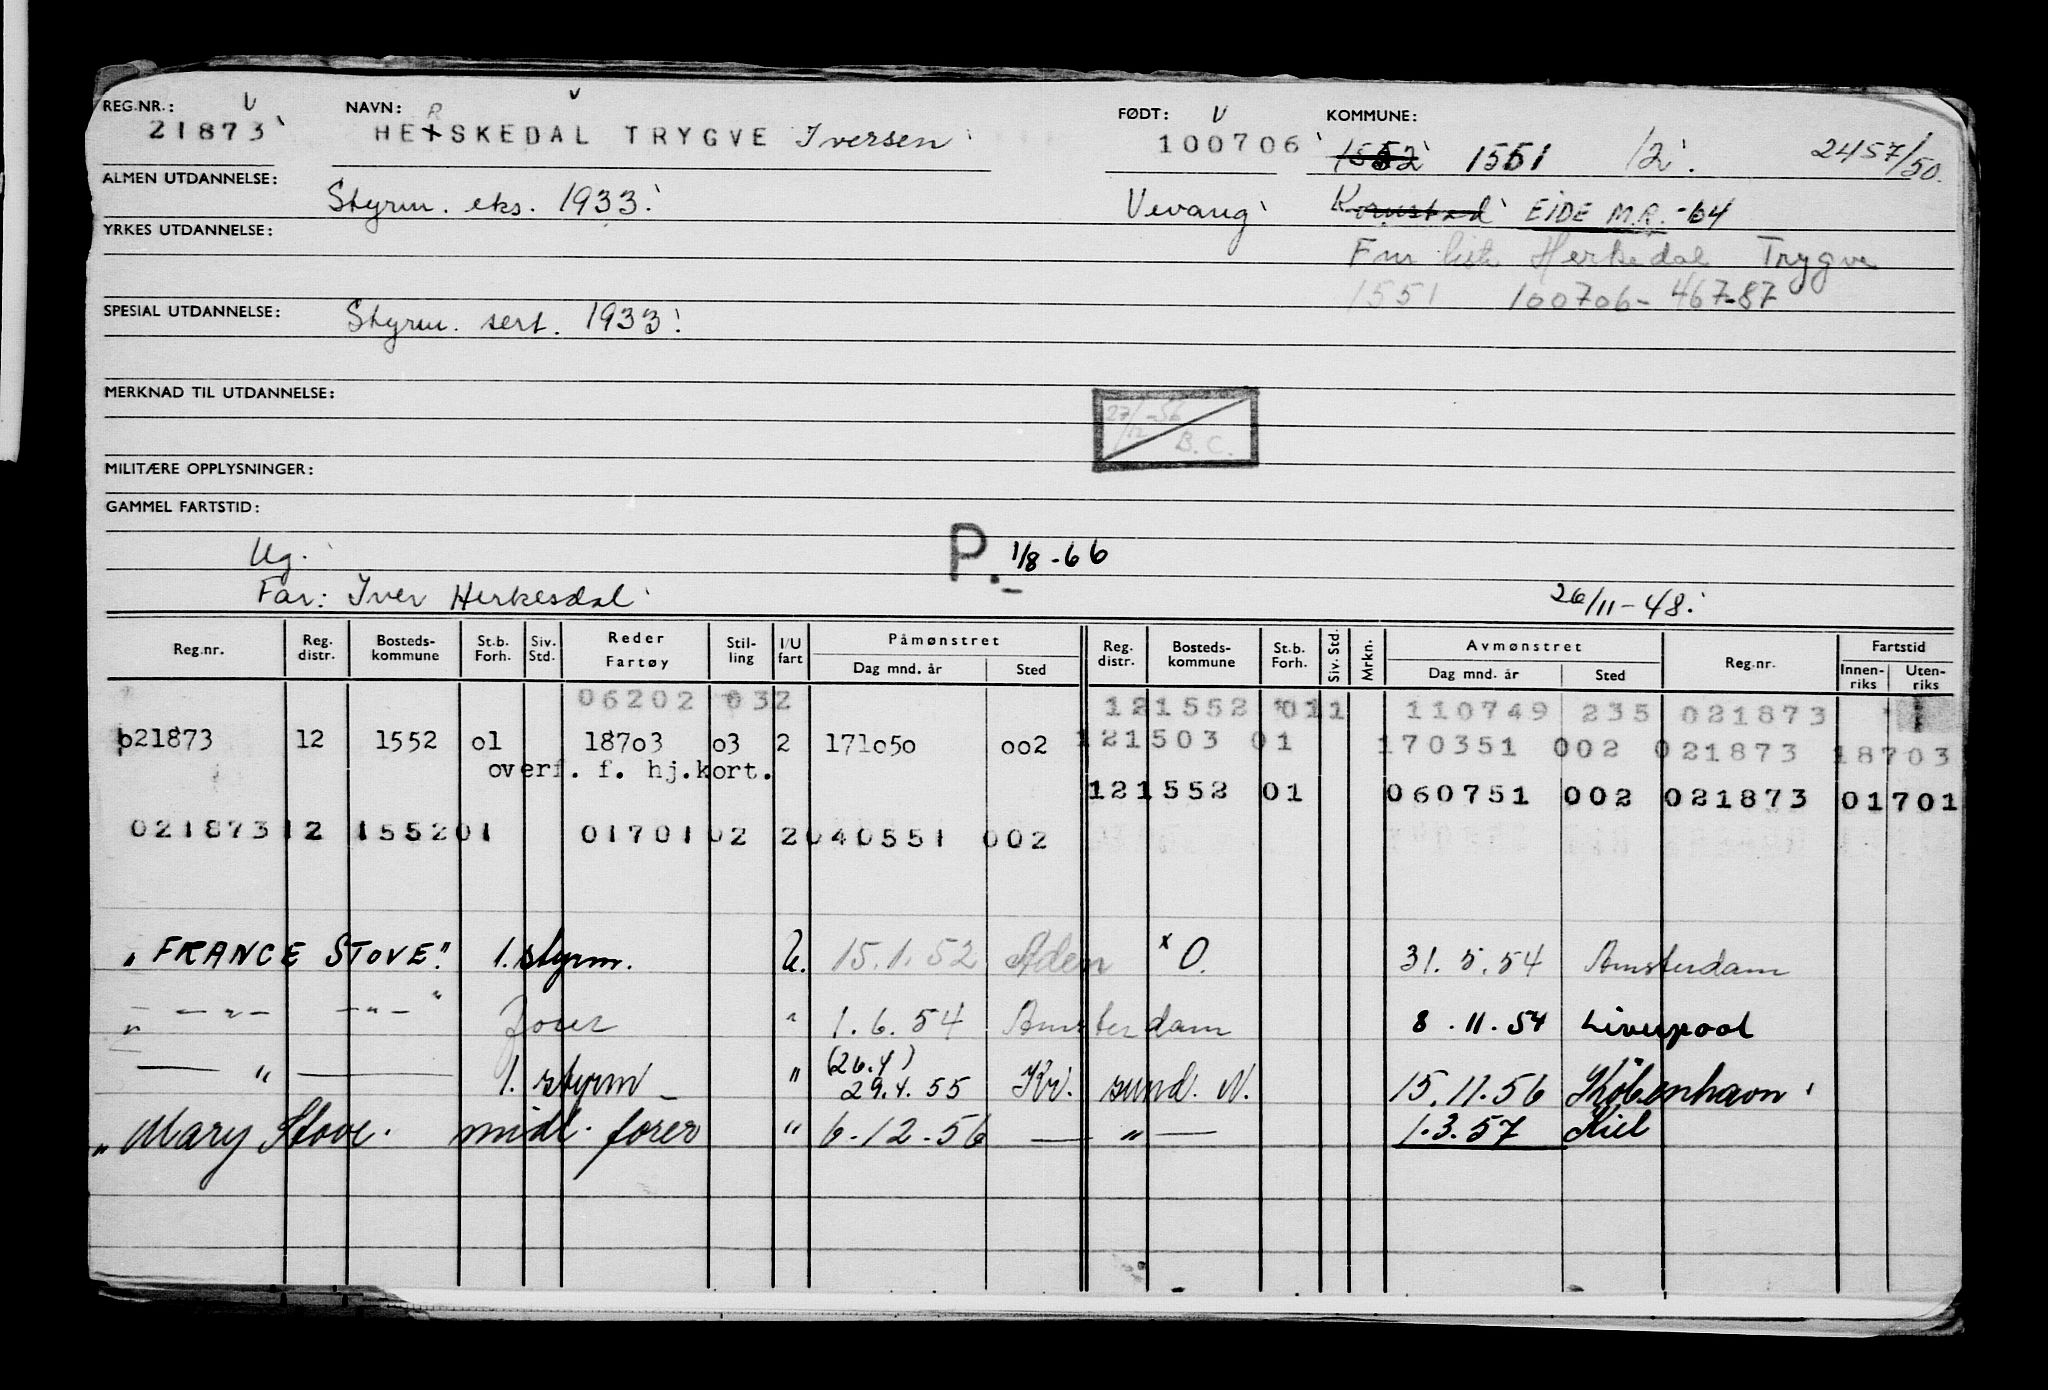 REG.NR.: V NAVN: V FØDT: V KOMMUNE:
21873 HERSKEDAL TRYGVE Iversen 100706 1552 1551 12. 2457/50.
ALMEN UTDANNELSE: Styrm. eks. 1933. Vevang Kornstad EIDE M.R. -64
YRKES UTDANNELSE:
Fnr liste Herkedal Trygve
1551 100706-46787
SPESIAL UTDANNELSE: Styrm. sert. 1933.
MERKNAD TIL UTDANNELSE:
27/12-56 B.C.
MILITÆRE OPPLYSNINGER:
GAMMEL FARTSTID:
Ug. P. 1/8-66
Far: Iver Herkesdal 26/11-48.
Reg.nr. Reg. distr. Bosteds-kommune St.b. Forh. Siv. Std. Reder Fartøy Stil-ling I/U fart Påmønstret Dag mnd. år Sted Reg. distr. Bosteds-kommune St.b. Forh. Siv. Std. Mrkn. Avmønstret Dag mnd. år Sted Reg.nr. Fartstid Innen-riks Uten-riks
06202 032 121552 011 110749 235 021873
o21873 12 1552 o1 187o3 o3 2 171o5o oo2 121503 01 170351 002 021873 18703
overf. f. hj.kort.
121552 01 060751 002 021873 01701
021873 12 1552 01 01701 02 2 040551 002
"FRANCE STOVE" 1. styrm. U. 15.1.52 Aden x O. 31.5.54 Amsterdam
" — " — — " — " fører " 1.6.54 Amsterdam 8.11.54 Liverpool
— " — 1. styrm " (26.4) 29.4.55 Kr. sund. N. 15.11.56 København
"Mary Stove. midl. fører " 6-12-56 — " — 1.3.57 Kiel